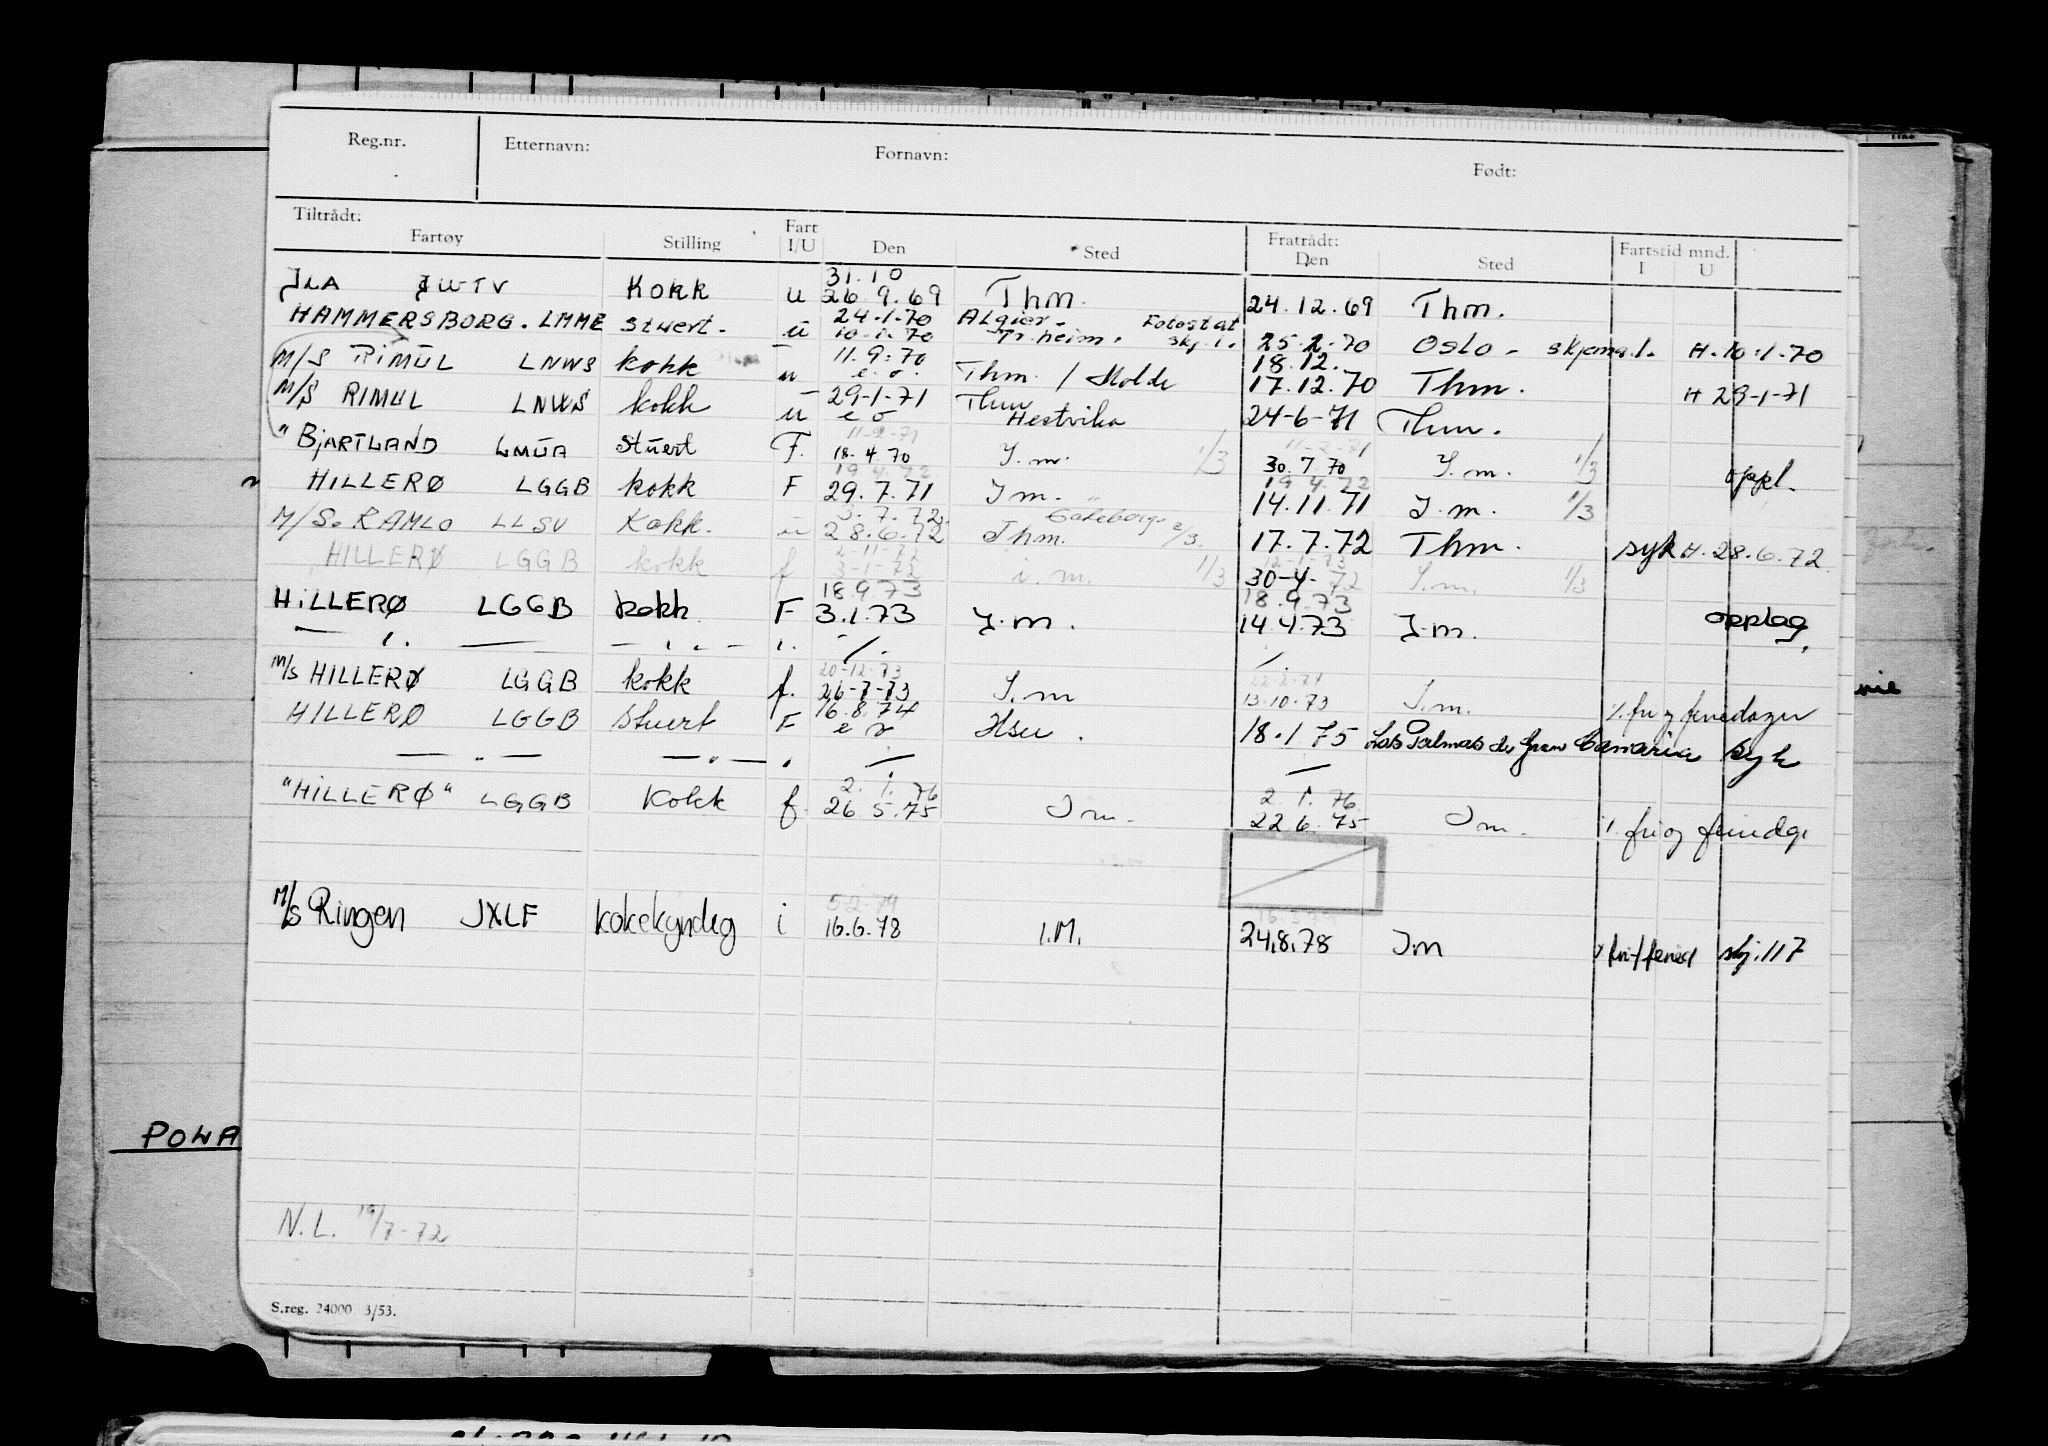 Reg.nr. Etternavn: Fornavn: Født:
Tiltrådt: Fratrådt:
Fartøy Stilling Fart I/U Den Sted Den Sted Fartstid mnd. I U
31.10
JLA JWTV Kokk u 26.9.69 Thm. 24.12.69 Thm.
24.1.70 Algier Fotostat
HAMMERSBORG. LMME stuert. u 10.1.70 Tr.heim. skj.1. 25.2.70 Oslo. skjema 1. H.10.1.70
11.9.70 18.12.
M/S RIMUL LNWS kokk u e.o. Thm. / Molde 17.12.70 Thm. H 29-1-71
29-1-71 Thm
M/S RIMUL LNWS kokk u e o Hestvika 24-6-71 Thm.
11-2-71 11-2-71
" BJARTLAND LMUA stuert F. 18.4.70 I.m. 1/3 30.7.70 I.m. 1/3 oppl.
19.4.72 19.4.72
HILLERØ LGGB kokk F 29.7.71 I m. 14.11.71 I.m. 1/3
3.7.72 Gøteborg
M/S. RAMLO LLSU Kokk. u 28.6.72 Thm. 2/3. 17.7.72 Thm. syk H.28.6.72
2-11-72
HILLERØ LGGB kokk f 3-1-72 i.m. 1/3 30-4-72 I.m. 1/3
18.9.73 18.9.73
HILLERØ LGGB kokk F 3.1.73 I.m. 14.4.73 I.m. opplag.
20-12-73
M/S HILLERØ LGGB kokk f. 26-7-73 I.m 13.10.73 I.m. /. fri og feriedager
16.8.74
HILLERØ LGGB Stuert F e o Hsu. 18.1.75 Las Palmas de Gran Canaria syk
2.1.76 2.1.76
"HILLERØ" LGGB Kokk f. 26.5.75 I m. 22.6.75 I m. /. fri og feriedg.
5-2-79
M/S Ringen JXLF kokekyndig i 16.6.78 I.M. 24.8.78 I.m skj.117
POWA
N.L. 19/7-72
S.reg. 24000 3/53.